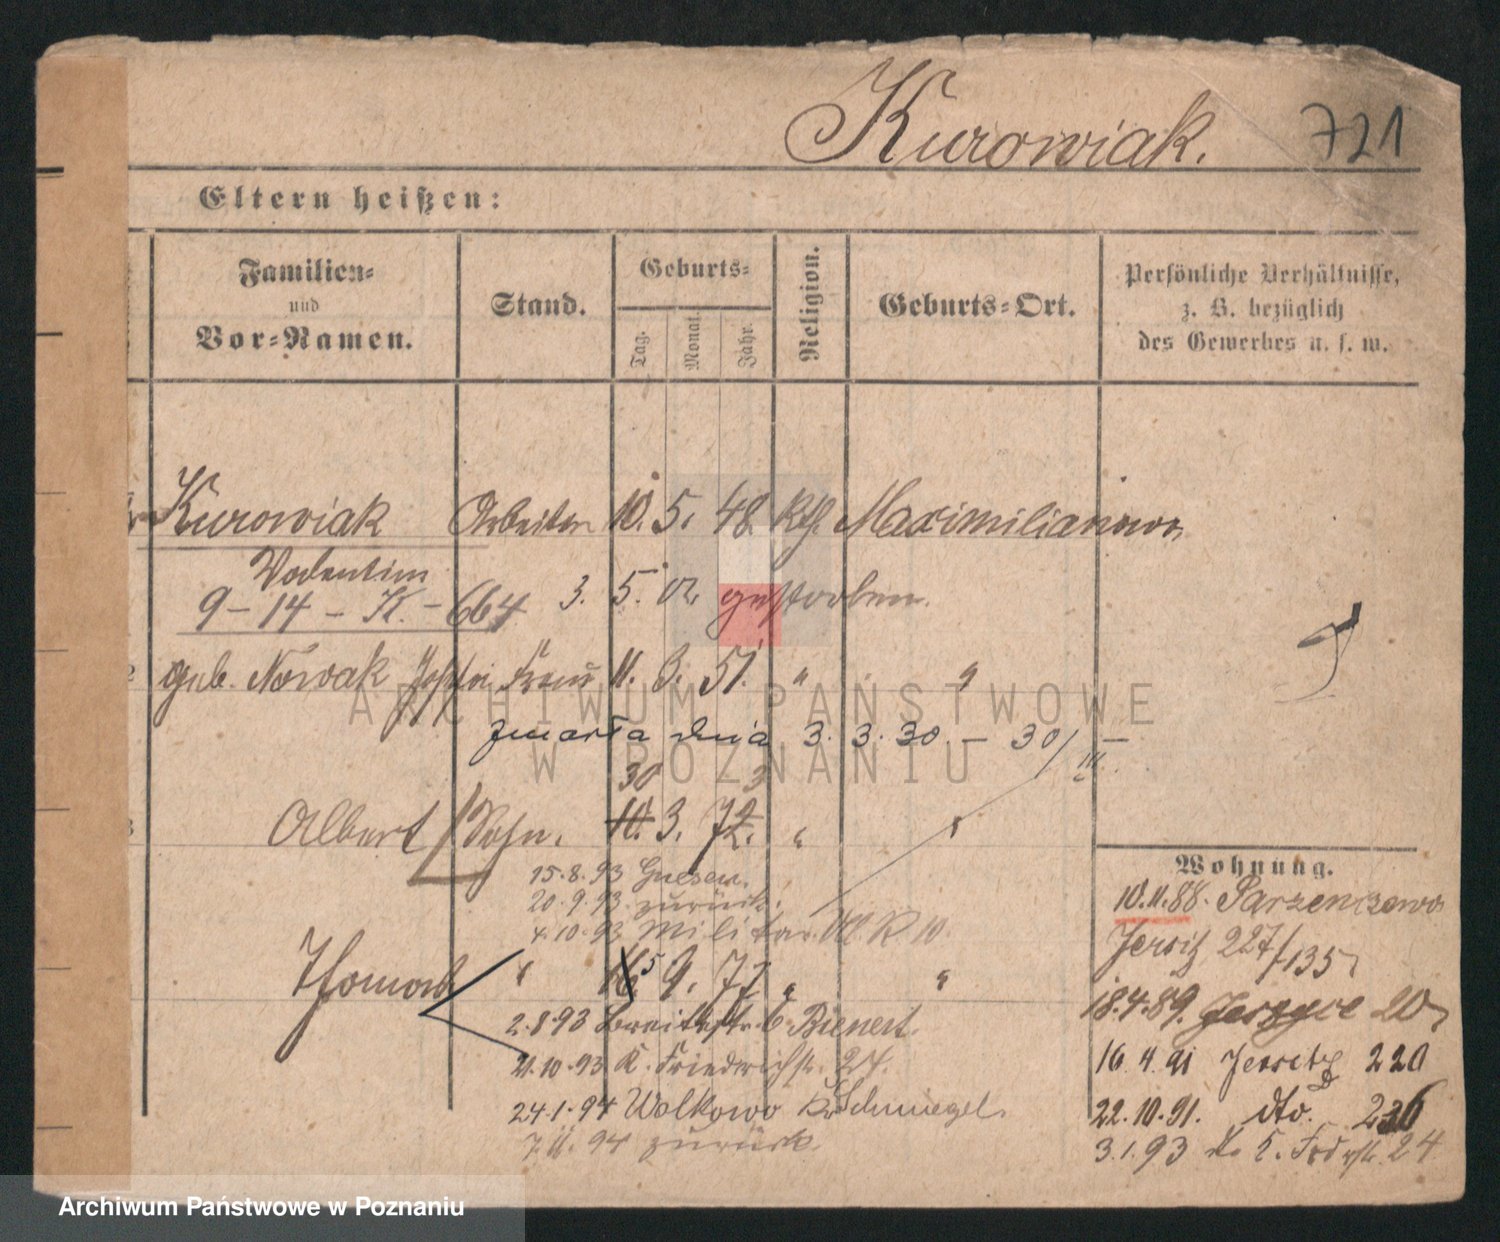 Kurowiak. 721
Eltern heißen:
Familien-
und
Vor-Namen.
Stand.
Geburts-
Tag.
Monat.
Jahr.
Religion.
Geburts-Ort.
Persönliche Verhältnisse,
z. B. bezüglich
des Gewerbes u. s. w.
Kurowiak Arbeiter 10. 5. 48. kth. Maximilianowo
Valentin
9 - 14 - K. - 664 3. 5. 02 gestorben.
geb. Nowak Frau 11. 3. 51. " "
zmarła dnia 3. 3. 30. - 30/III -
30 3
Albert Sohn. 10. 3. 72. " "
15.8.93 Gnesen.
20.9.93 zurück.
4.10.93 Militär
Thomas " 16. 5 9. 77 " "
2.8.93 Breitestr. 6 Bienert.
21.10.93 K. Friedrichstr. 27.
24.1.94 Wolkowo Kr Schmiegel
7.11.94 zurück.
Wohnung.
10.11.88. Parzenczewo
Jersitz 227/135
18.4.89. 20
16.4.91 Jersitz 220
22.10.91. dto. 236
3.1.93 24
ARCHIWUM PAŃSTWOWE
W POZNANIU
Archiwum Państwowe w Poznaniu